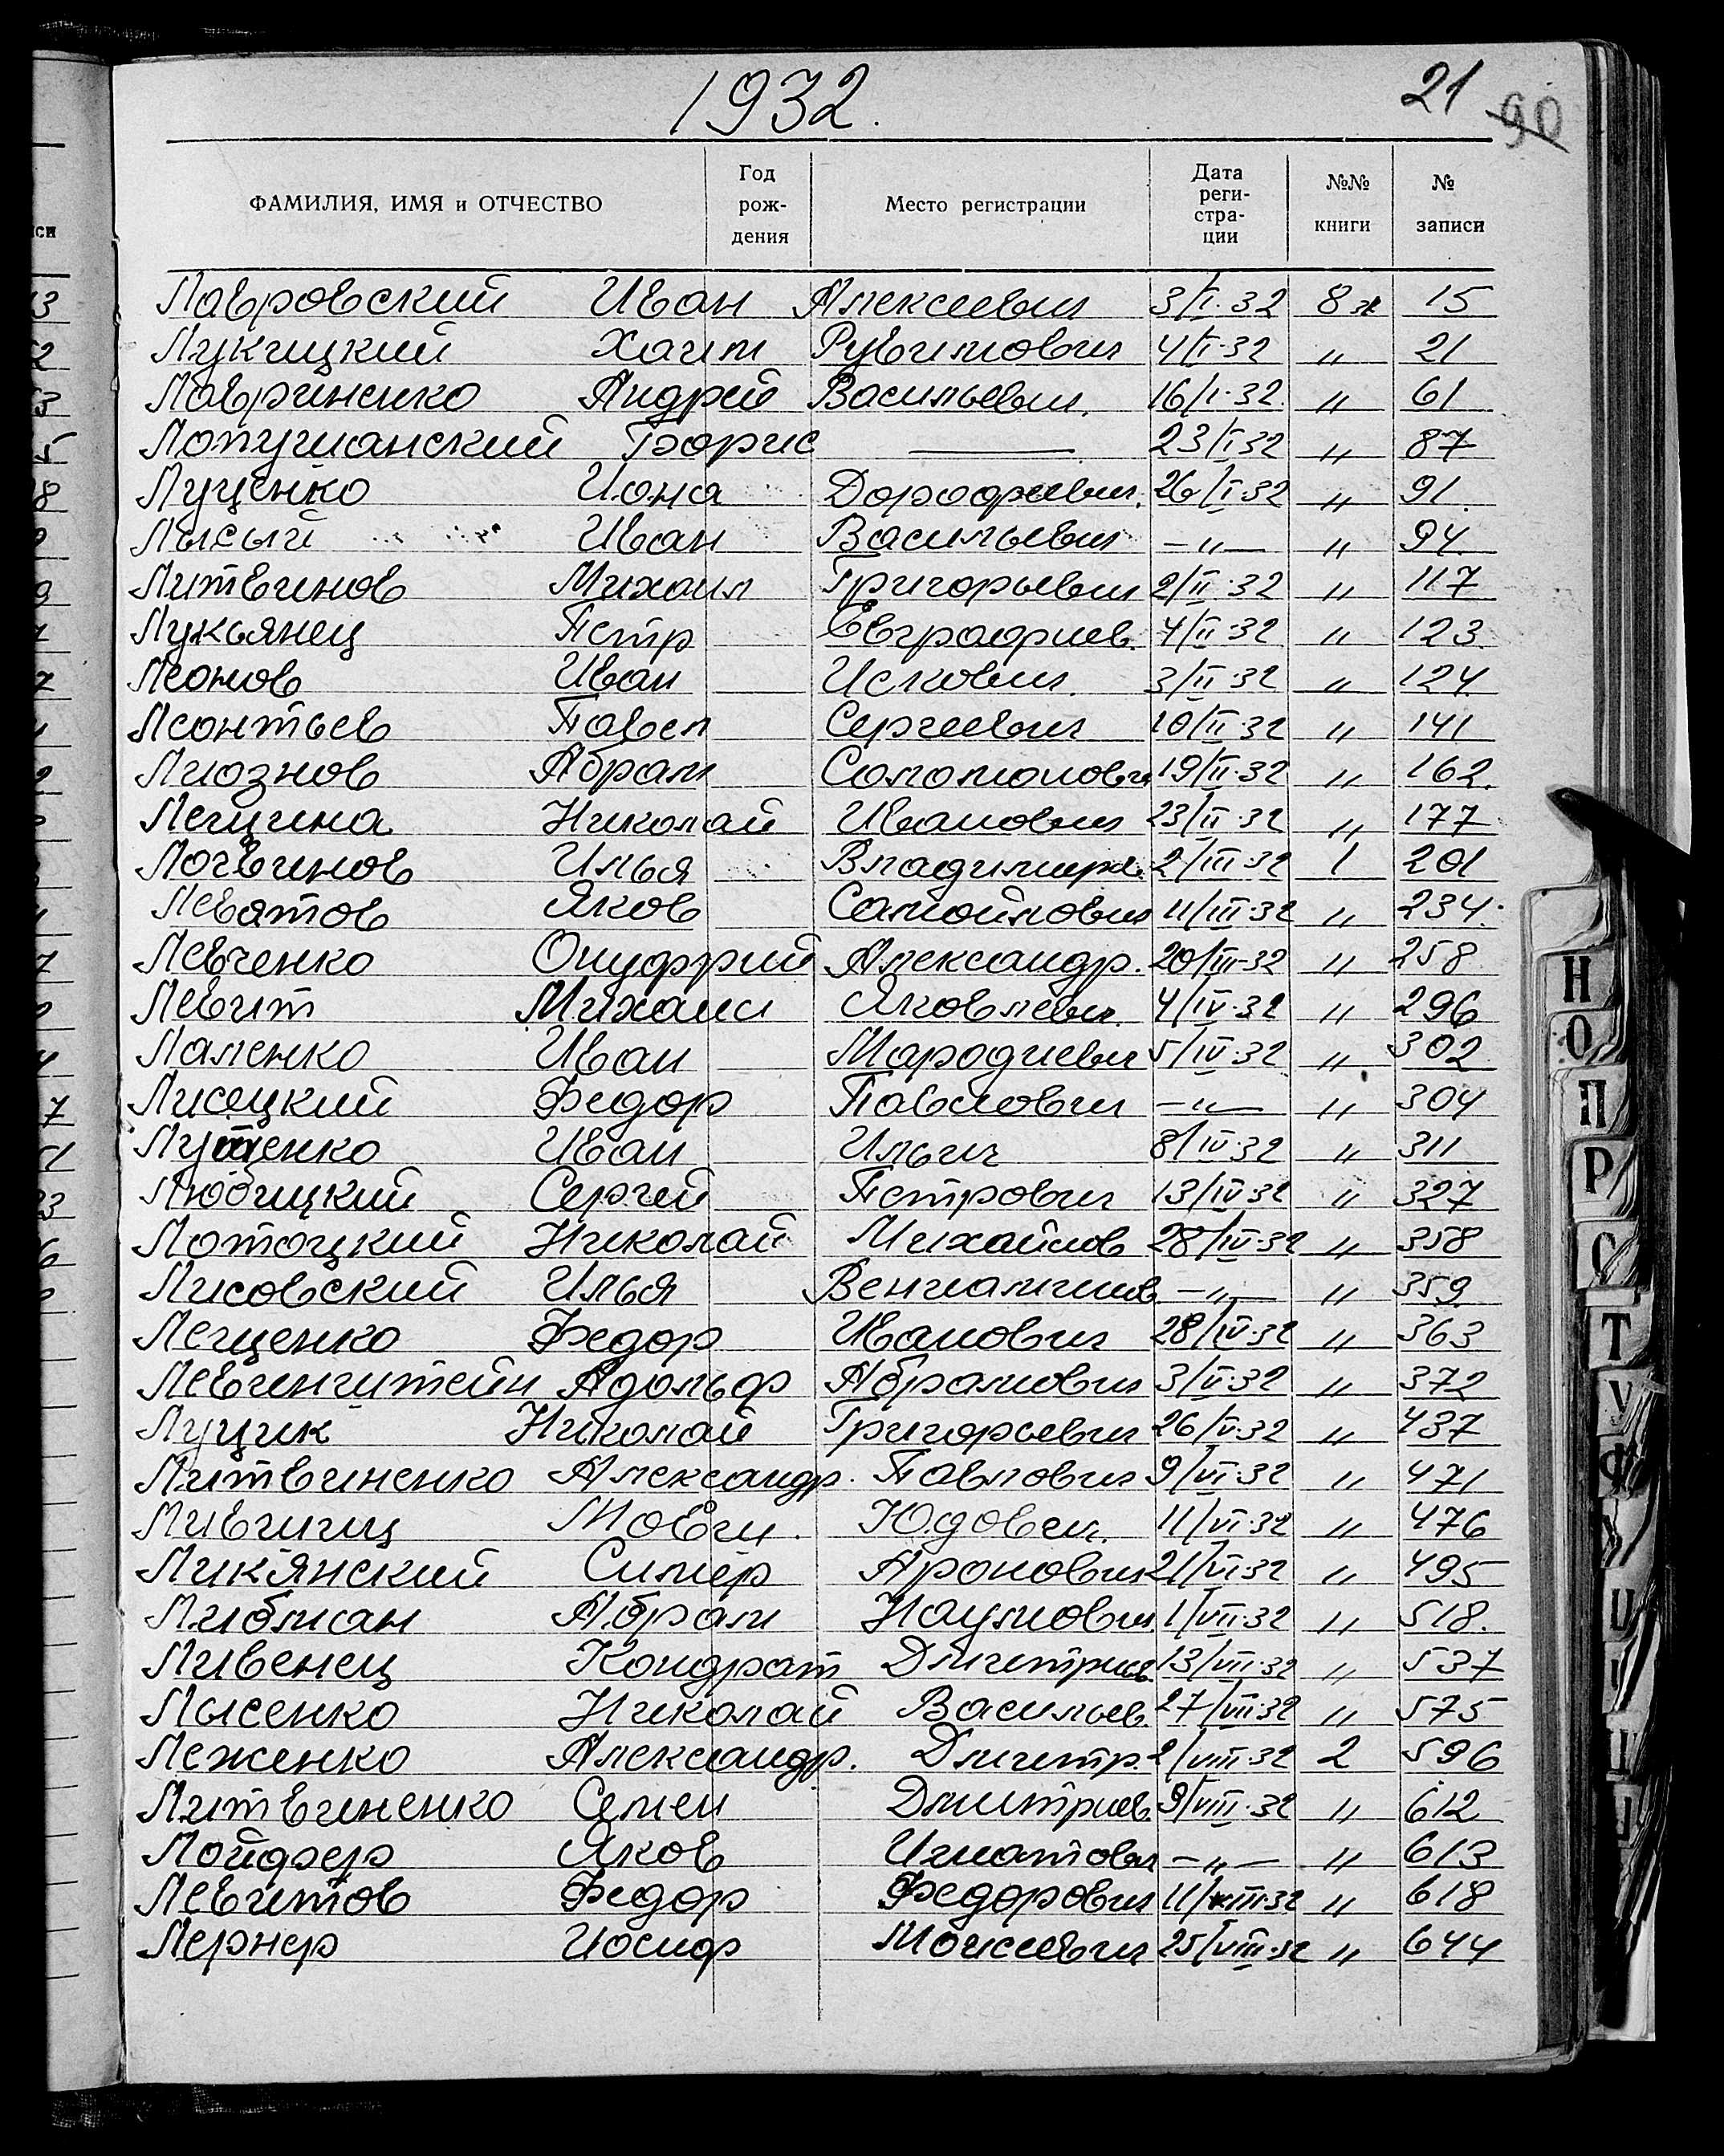 1932.
21 90
ФАМИЛИЯ, ИМЯ и ОТЧЕСТВО Год рождения Место регистрации Дата регистрации №№ книги № записи
Лавровский Иван Алексеевич 3/I·32 8 15
Лукницкий Хаим Рувимович 4/I·32 " 21
Лавриненко Андрей Васильевич. 16/I·32. " 61
Лопушанский Борис — 23/I 32 " 87
Луценко Иона Дорофеевич. 26/I·32 " 91.
Лысый Иван Васильевич —"— " 94.
Литвинов Михаил Григорьевич 2/II·32 " 117
Лукьянец Петр Евграфиев. 4/II·32 " 123.
Леонов Иван 3/II·32 " 124
Леонтьев Павел Сергеевич 10/II·32 " 141
Лиознов Абрам Соломонович 19/II·32 " 162.
Лещина Николай Иванович 23/II·32 " 177
Логвинов Илья Владимиров. 2/III·32 1 201
Леватов Яков Самойлович 11/III·32 " 234.
Левченко Онуфрий Александр. 20/III·32 " 258
Левит Михаил Яковлевич. 4/IV·32 " 296
Лаленко Иван 5/IV·32 " 302
Лисецкий Федор Павлович —"— " 304
Лущенко Иван Ильич 8/IV·32 " 311
Любицкий Сергей Петрович 13/IV·32 " 327
Лотоцкий Николай Михайлов 28/IV·32 " 358
Лисовский Илья Вениаминов —"— " 359
Лещенко Федор Иванович 28/IV·32 " 363
Левинштейн Адольф Абрамович 3/V·32 " 372
Луцик Николай Григорьевич 26/V·32 " 437
Литвиненко Александр. Павлович 9/VI·32 " 471
Лившиц Мовши. Юдович. 11/VI·32 " 476
Ликянский Симер Аронович 21/VI·32 " 495
Либман Абрам Наумович 1/VII·32 " 518.
Ливенец Кондрат Дмитриев. 13/VII·32 " 537
Лысенко Николай Васильев. 27/VII·32 " 575
Леженко Александр. Дмитр. 2/VIII·32 2 596
Литвиненко Семен Дмитриев 9/VIII·32 " 612
Лойфер Яков Игнатович —"— " 613
Левитов Федор Федорович 11/VIII·32 " 618
Лернер Иосиф Моисеевич 25/VIII·32 " 644
Н
О
П
Р
С
Т
У
Ф